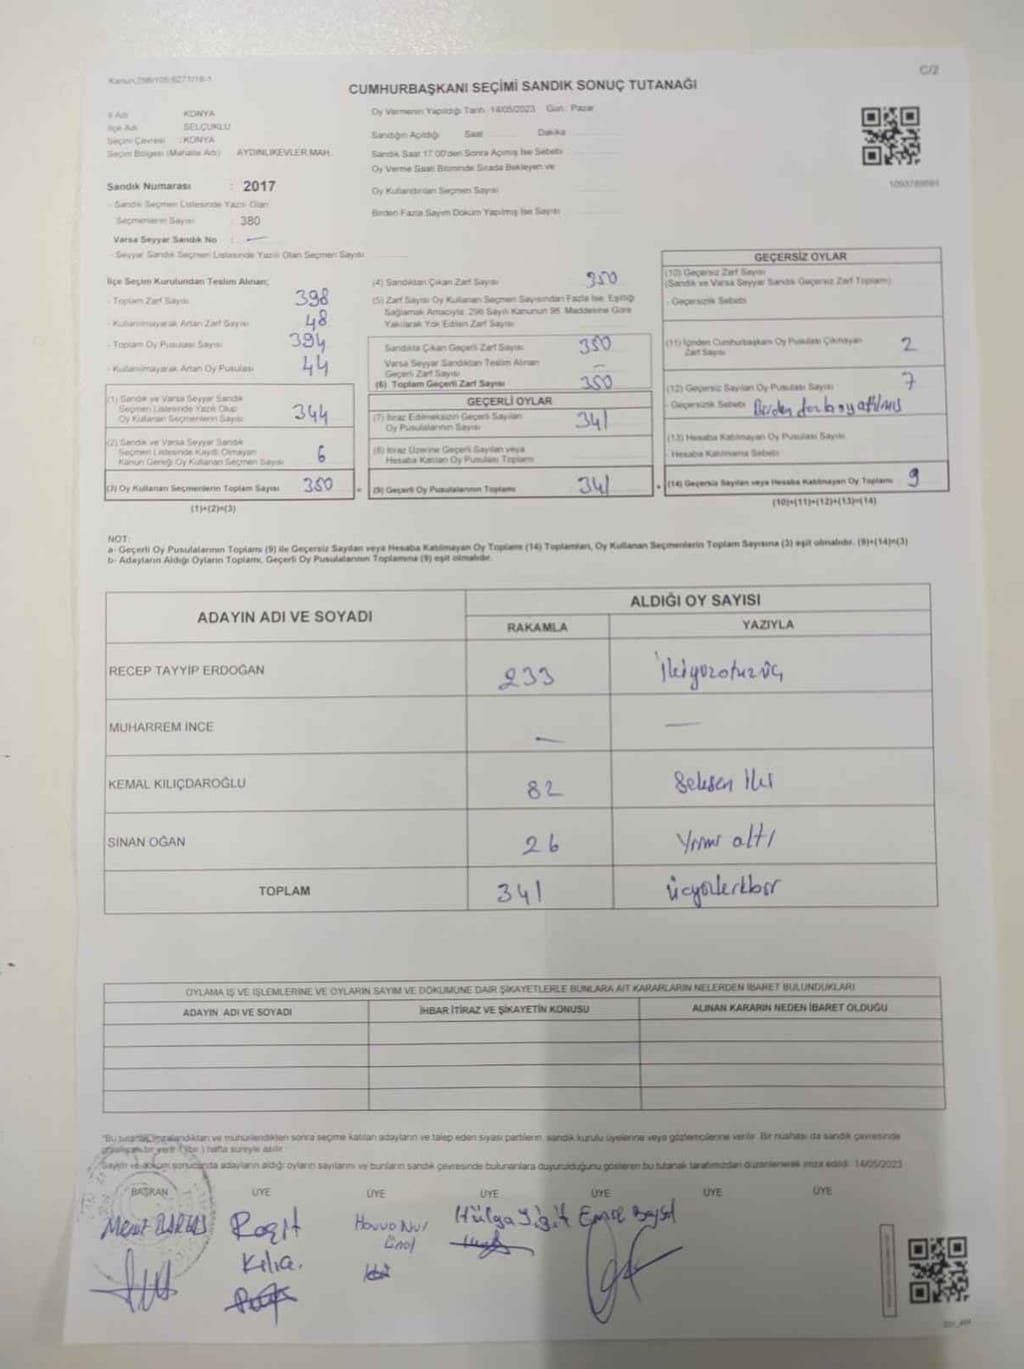 Kanun:298/105;6271/18-1
C/2
CUMHURBAŞKANI SEÇİMİ SANDIK SONUÇ TUTANAĞI
İl Adı : KONYA
İlçe Adı : SELÇUKLU
Seçim Çevresi : KONYA
Seçim Bölgesi (Mahalle Adı) : AYDINLIKEVLER MAH.
Sandık Numarası : 2017
- Sandık Seçmen Listesinde Yazılı Olan
Seçmenlerin Sayısı : 380
Varsa Seyyar Sandık No : —
- Seyyar Sandık Seçmen Listesinde Yazılı Olan Seçmen Sayısı
Oy Vermenin Yapıldığı Tarih : 14/05/2023 Gün : Pazar
Sandığın Açıldığı Saat Dakika
Sandık Saat 17.00'den Sonra Açılmış İse Sebebi
Oy Verme Saati Bitiminde Sırada Bekleyen ve
Oy Kullandırılan Seçmen Sayısı
Birden Fazla Sayım Döküm Yapılmış İse Sayısı
İlçe Seçim Kurulundan Teslim Alınan;
- Toplam Zarf Sayısı 398
- Kullanılmayarak Artan Zarf Sayısı 48
- Toplam Oy Pusulası Sayısı 394
- Kullanılmayarak Artan Oy Pusulası 44
(1) Sandık ve Varsa Seyyar Sandık
Seçmen Listesinde Yazılı Olup
Oy Kullanan Seçmenlerin Sayısı 344
(2) Sandık ve Varsa Seyyar Sandık
Seçmen Listesinde Kayıtlı Olmayan
Kanun Gereği Oy Kullanan Seçmen Sayısı 6
(3) Oy Kullanan Seçmenlerin Toplam Sayısı 350
(1)+(2)=(3)
(4) Sandıktan Çıkan Zarf Sayısı 350
(5) Zarf Sayısı Oy Kullanan Seçmen Sayısından Fazla İse, Eşitliği
Sağlamak Amacıyla; 298 Sayılı Kanunun 98. Maddesine Göre
Yakılarak Yok Edilen Zarf Sayısı
Sandıkta Çıkan Geçerli Zarf Sayısı 350
Varsa Seyyar Sandıktan Teslim Alınan
Geçerli Zarf Sayısı —
(6) Toplam Geçerli Zarf Sayısı 350
GEÇERLİ OYLAR
(7) İtiraz Edilmeksizin Geçerli Sayılan
Oy Pusulalarının Sayısı 341
(8) İtiraz Üzerine Geçerli Sayılan veya
Hesaba Katılan Oy Pusulası Toplamı
(9) Geçerli Oy Pusulalarının Toplamı 341
GEÇERSİZ OYLAR
(10) Geçersiz Zarf Sayısı
(Sandık ve Varsa Seyyar Sandık Geçersiz Zarf Toplamı)
- Geçersizlik Sebebi
(11) İçinden Cumhurbaşkanı Oy Pusulası Çıkmayan
Zarf Sayısı 2
(12) Geçersiz Sayılan Oy Pusulası Sayısı 7
- Geçersizlik Sebebi Birden fazla oy atılmış
(13) Hesaba Katılmayan Oy Pusulası Sayısı
- Hesaba Katılmama Sebebi
(14) Geçersiz Sayılan veya Hesaba Katılmayan Oy Toplamı 9
(10)+(11)+(12)+(13)=(14)
NOT:
a- Geçerli Oy Pusulalarının Toplamı (9) ile Geçersiz Sayılan veya Hesaba Katılmayan Oy Toplamı (14) Toplamları, Oy Kullanan Seçmenlerin Toplam Sayısına (3) eşit olmalıdır. (9)+(14)=(3)
b- Adayların Aldığı Oyların Toplamı, Geçerli Oy Pusulalarının Toplamına (9) eşit olmalıdır.
ADAYIN ADI VE SOYADI
ALDIĞI OY SAYISI
RAKAMLA YAZIYLA
RECEP TAYYİP ERDOĞAN 233 İkiyüzotuzüç
MUHARREM İNCE — —
KEMAL KILIÇDAROĞLU 82 Seksen İki
SİNAN OĞAN 26 Yirmi altı
TOPLAM 341 Üçyüzkırkbir
OYLAMA İŞ VE İŞLEMLERİNE VE OYLARIN SAYIM VE DÖKÜMÜNE DAİR ŞİKAYETLERLE BUNLARA AİT KARARLARIN NELERDEN İBARET BULUNDUKLARI
ADAYIN ADI VE SOYADI İHBAR İTİRAZ VE ŞİKAYETİN KONUSU ALINAN KARARIN NEDEN İBARET OLDUĞU
*Bu tutanak imzalandıktan ve mühürlendikten sonra seçime katılan adayların ve talep eden siyasi partilerin, sandık kurulu üyelerine veya gözlemcilerine verilir. Bir nüshası da sandık çevresinde
bir yere 1 (bir) hafta süreyle asılır.
Sayım ve döküm sonucunda adayların aldığı oyların sayılarını ve bunların sandık çevresinde bulunanlara duyurulduğunu gösteren bu tutanak tarafımızdan düzenlenerek imza edildi. 14/05/2023
BAŞKAN ÜYE ÜYE ÜYE ÜYE ÜYE ÜYE
Raşit
Kılıç.
Havva Nur
Ünal
Hülya Yiğit
Emre